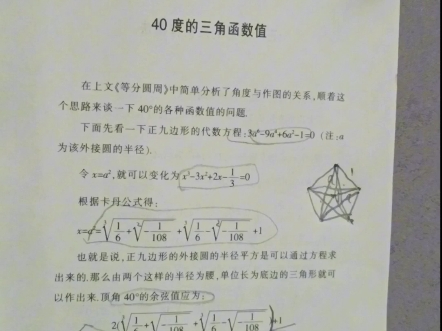 40 度的三角函数值
在上文《等分圆周》中简单分析了角度与作图的关系,顺着这
个思路来谈一下 40°的各种函数值的问题.
下面先看一下正九边形的代数方程:3a⁶-9a⁴+6a²-1=0 (注:a
为该外接圆的半径).
令 x=a²,就可以变化为 x³-3x²+2x-1/3=0
根据卡丹公式得:
x=a²=∛(1/6+√(-1/108))+∛(1/6-√(-1/108))+1
也就是说,正九边形的外接圆的半径平方是可以通过方程求
出来的.那么由两个这样的半径为腰,单位长为底边的三角形就可
以作出来.顶角 40°的余弦值应为: